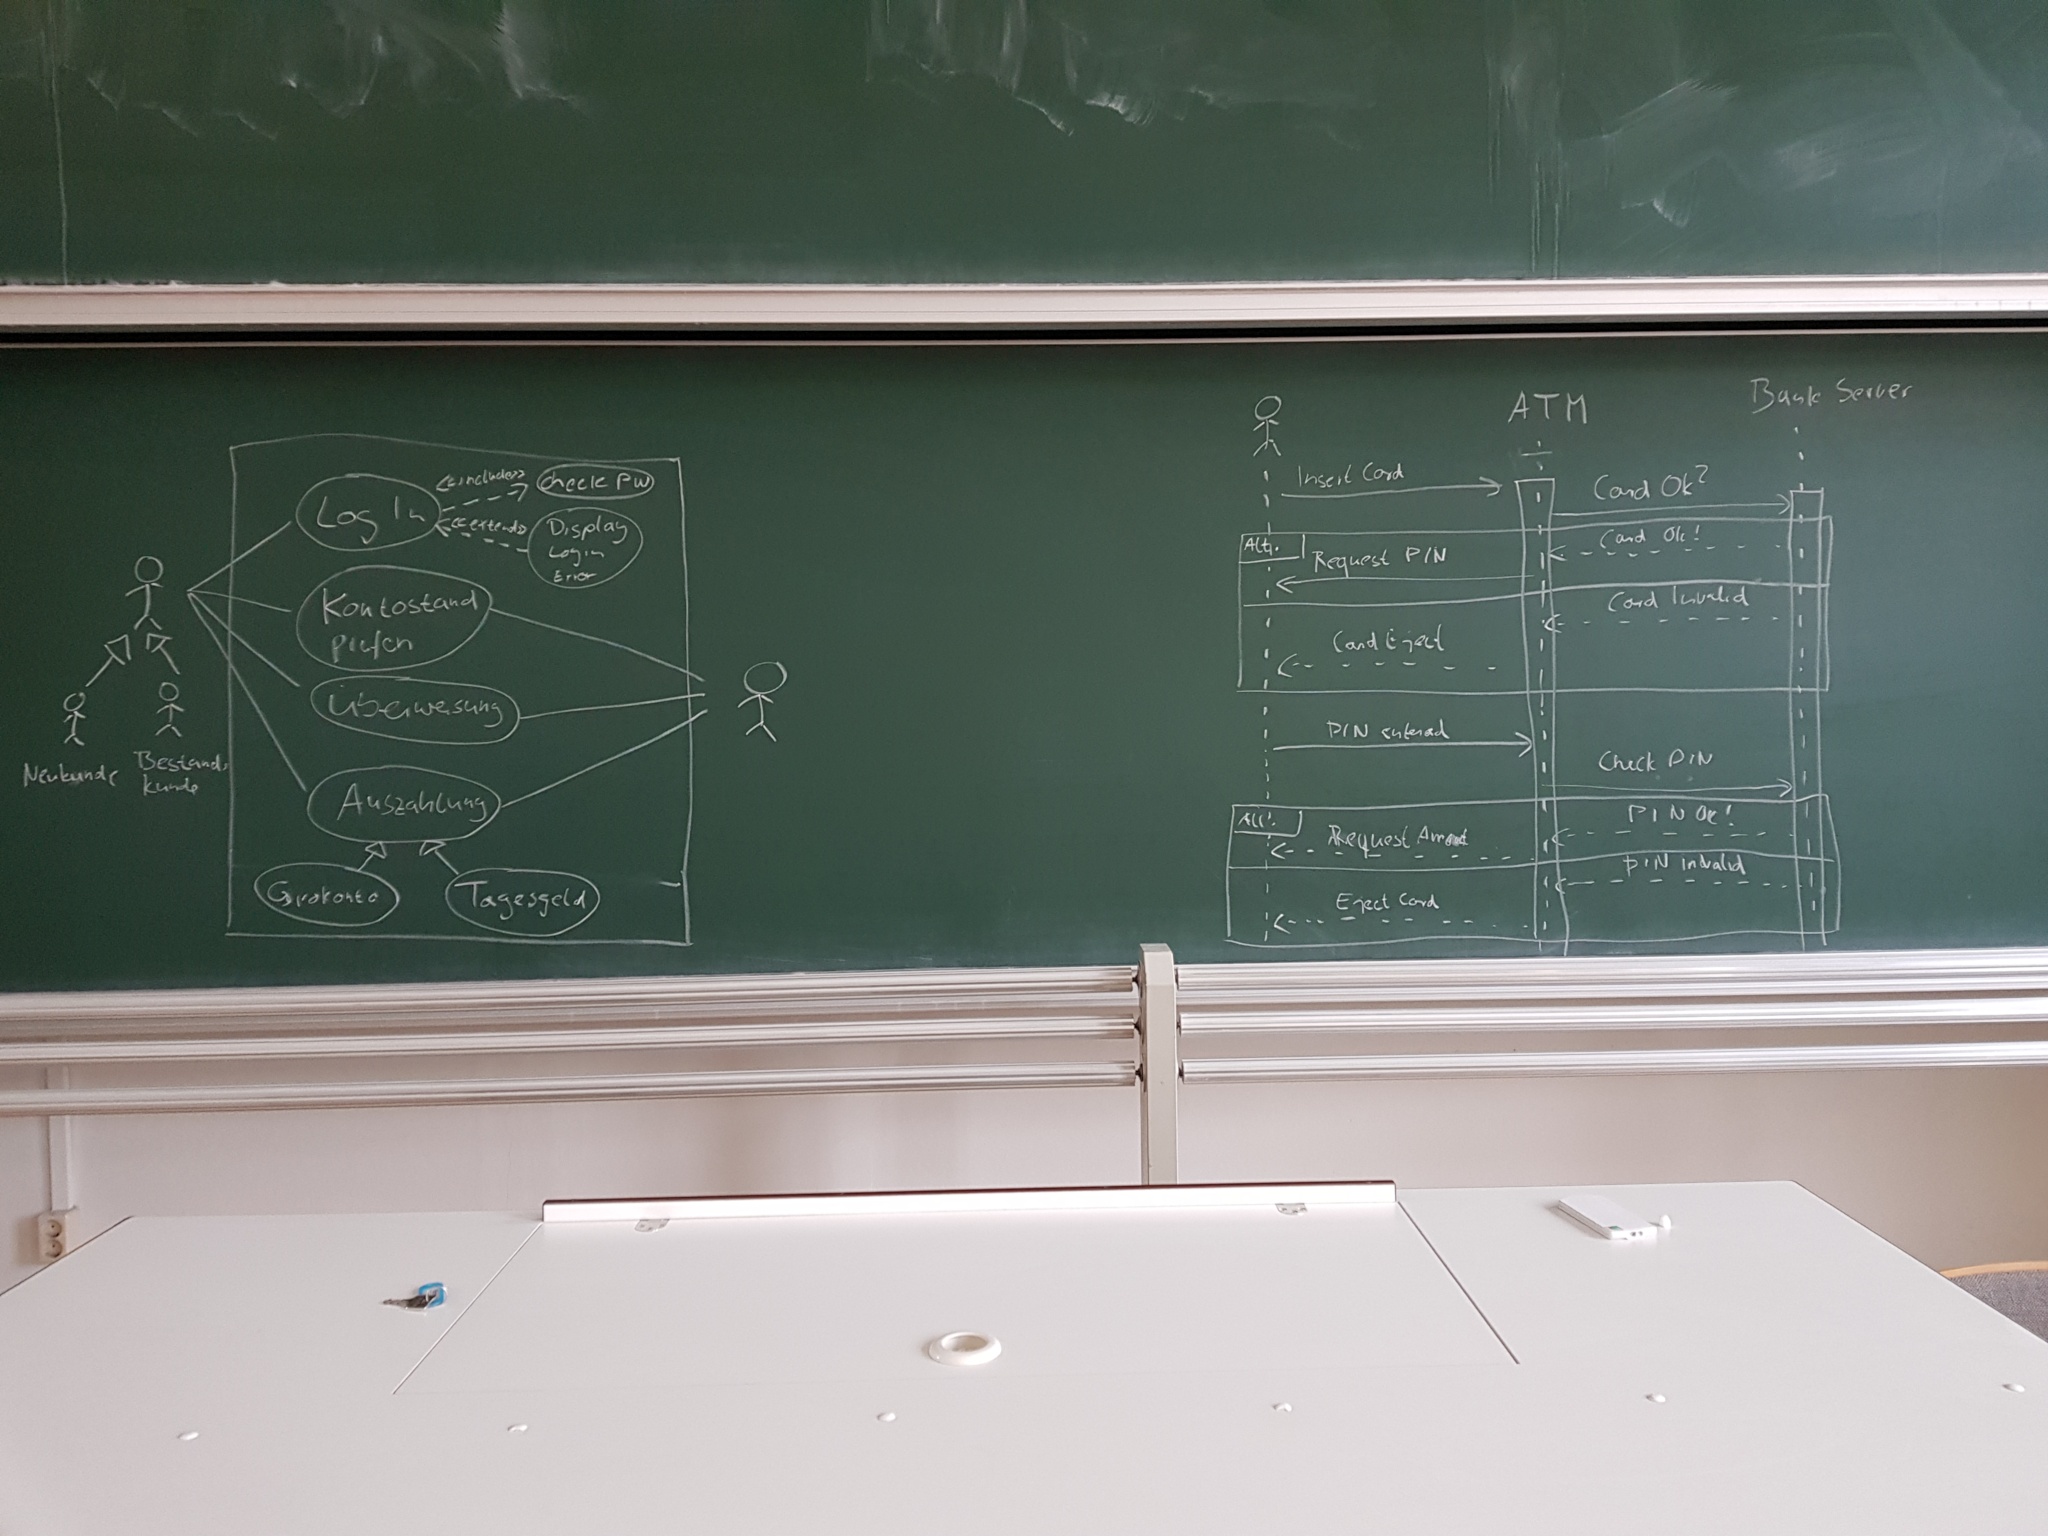 Log In
<<include>>
Check PW
<<extend>>
Display
Login
Error
Kontostand
prüfen
Überweisung
Auszahlung
Girokonto
Tagesgeld
Neukunde
Bestands
kunde
ATM
Bank Server
Insert Card
Card Ok?
Alt.
Card Ok!
Request PIN
Card Invalid
Card Eject
PIN entered
Check PIN
Alt.
PIN Ok!
Request Amount
PIN invalid
Eject Card